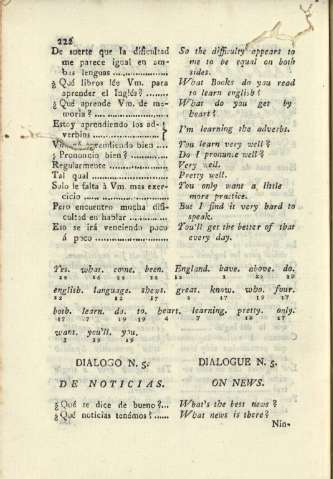 228
De suerte que la dificultad
me parece igual en am-
bas lenguas ..................
¿ Qué libros lée Vm. para
aprender el Inglés? ........
¿ Qué aprende Vm. de me-
moria? .......................
Estoy aprendiendo los ad-
verbios .......................
aprendiendo bien ....
¿ Pronuncio bien? ............
Regularmente .................
Tal qual .......................
Solo le falta á Vm. mas exer-
cicio ..........................
Pero encuentro mucha difi-
cultad en hablar ............
Eso se irá venciendo poco
á poco .......................
So the difficulty appears to
me to be equal on both
sides.
What Books do you read
to learn english?
What do you get by
heart?
I'm learning the adverbs.
You learn very well?
Do I pronunce well?
Very well.
Pretty well.
You only want a little
more practice.
But I find it very hard to
speak.
You'll get the better of that
every day.
Yes. what. come. been. England. have. above. do.
english. language. shews. great. know. who. four.
both. learn. do. to. heart. learning. pretty. only.
want. you'll. you.
DIALOGO N. 5.
DE NOTICIAS.
¿ Qué se dice de bueno?...
¿ Qué noticias tenémos? ......
DIALOGUE N. 5.
ON NEWS.
What's the best news?
What news is there?
Nin-